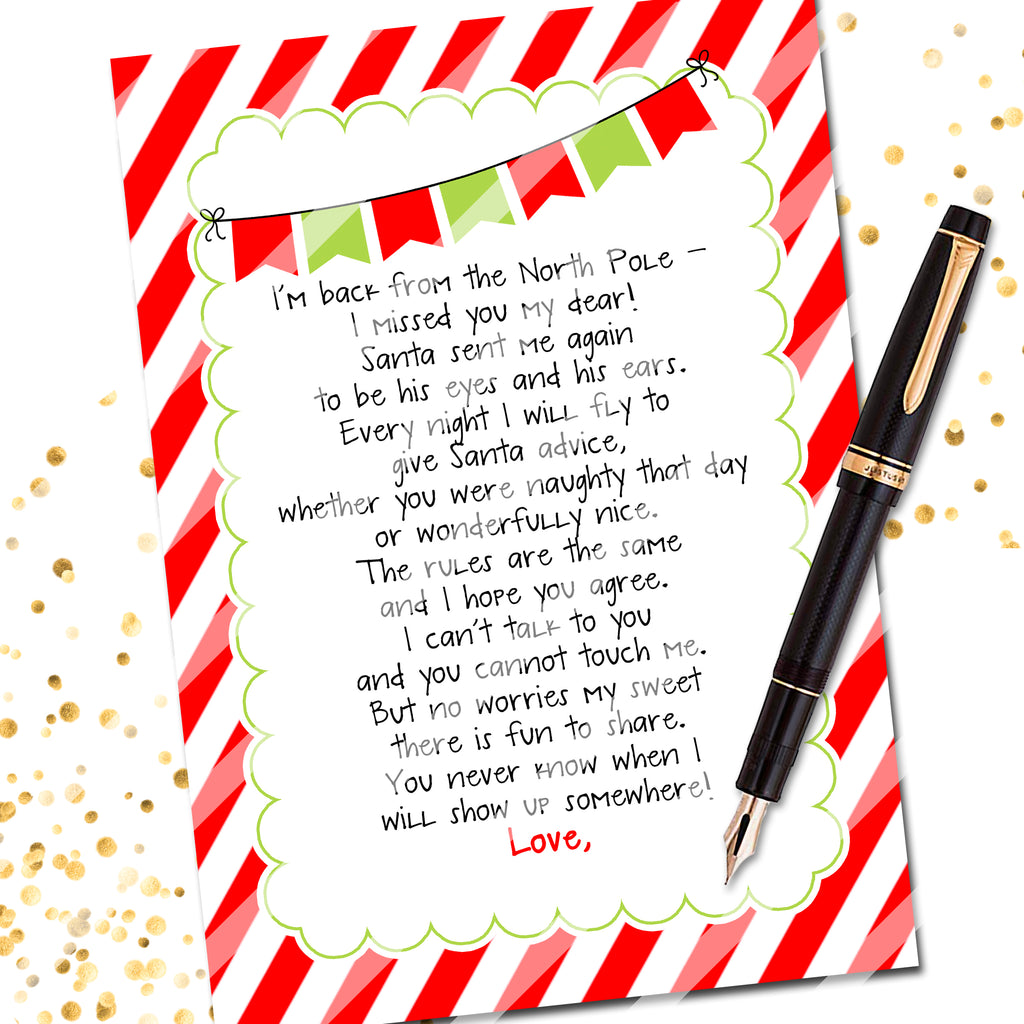 I'm back from the North Pole –
I missed you my dear!
Santa sent me again
to be his eyes and his ears.
Every night I will fly to
give Santa advice,
whether you were naughty that day
or wonderfully nice.
The rules are the same
and I hope you agree.
I can't talk to you
and you cannot touch me.
But no worries my sweet
there is fun to share.
You never know when I
will show up somewhere!
Love,